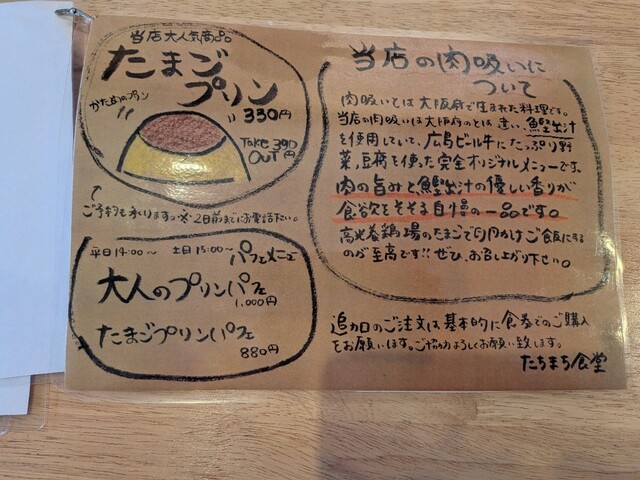 当店大人気商品
たまご
プリン
かためプリン
330円
Take
OUT 390円
ご予約も承ります。※2日前までにお電話下さい。
平日14:00〜 土日15:00〜 パフェメニュー
大人のプリンパフェ
1,000円
たまごプリンパフェ
880円
当店の肉吸いに
ついて
肉吸いとは大阪府で生まれた料理です。
当店の肉吸いは大阪府のとは違い、鰹出汁
を使用していて、広島ビール牛にたっぷり野
菜、豆腐を使った完全オリジナルメニューです。
肉の旨みと鰹出汁の優しい香りが
食欲をそそる自慢の一品です。
高光養鶏場のたまごで卵かけご飯にする
のが至高です!!ぜひ、お召し上がり下さい。
追加のご注文は基本的に食券でのご購入
をお願いします。ご協力よろしくお願い致します。
たちまち食堂